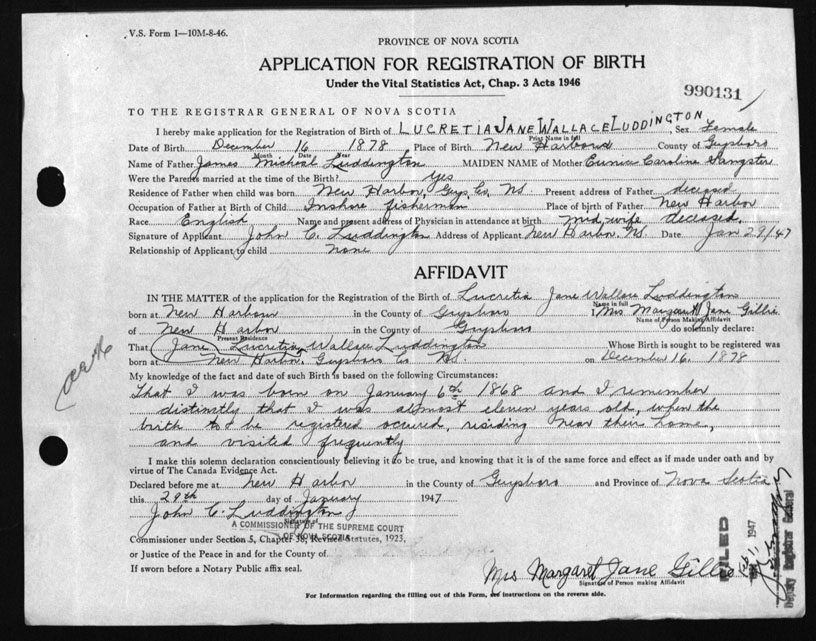 V.S. Form 1—10M-8-46.
PROVINCE OF NOVA SCOTIA
APPLICATION FOR REGISTRATION OF BIRTH
Under the Vital Statistics Act, Chap. 3 Acts 1946
990131
TO THE REGISTRAR GENERAL OF NOVA SCOTIA
I hereby make application for the Registration of Birth of LUCRETIA JANE WALLACE LUDDINGTON, Sex Female
Print Name in full
Date of Birth December 16 1878 Place of Birth New Harbour County of Guysboro
Month Date Year
Name of Father James Michael Luddington MAIDEN NAME of Mother Eunice Caroline Sangster
Were the Parents married at the time of the Birth? Yes
Residence of Father when child was born New Harbor, Guys. Co. NS. Present address of Father deceased
Occupation of Father at Birth of Child Inshore fisherman Place of birth of Father New Harbor
Race English Name and present address of Physician in attendance at birth mid wife deceased.
Signature of Applicant John C. Luddington Address of Applicant New Harbor. NS. Date Jan 29/47
Relationship of Applicant to child none
AFFIDAVIT
IN THE MATTER of the application for the Registration of the Birth of Lucretia Jane Wallace Luddington
Name in full
born at New Harbour in the County of Guysboro I, Mrs Margaret Jane Gillie
Name of Person Making Affidavit
of New Harbor in the County of Guysboro do solemnly declare:
Present Residence
That Jane Lucretia Wallace Luddington Whose Birth is sought to be registered was
born at New Harbor, Guysboro Co NS. on December 16, 1878
My knowledge of the fact and date of such Birth is based on the following Circumstances:
That I was born on January 6th 1868 and I remember
distinctly that I was almost eleven years old, when the
birth to be registered occured, residing near their home,
and visited frequently
I make this solemn declaration conscientiously believing it to be true, and knowing that it is of the same force and effect as if made under oath and by
virtue of The Canada Evidence Act.
Declared before me at New Harbor in the County of Guysboro and Province of Nova Scotia
this 29th day of January 1947
John C. Luddington
Signature of
A COMMISSIONER OF THE SUPREME COURT
OF NOVA SCOTIA
Commissioner under Section 5, Chapter 38, Revised Statutes, 1923,
or Justice of the Peace in and for the County of
If sworn before a Notary Public affix seal.
Mrs Margaret Jane Gillie
Signature of Person making Affidavit
For Information regarding the filling out of this Form, see instructions on the reverse side.
FILED
Feb 1, 1947
Deputy Registrar General